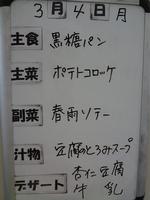 3月4日月
主食 黒糖パン
主菜 ポテトコロッケ
副菜 春雨ソテー
汁物 豆腐のとろみスープ
デザート 杏仁豆腐
牛乳